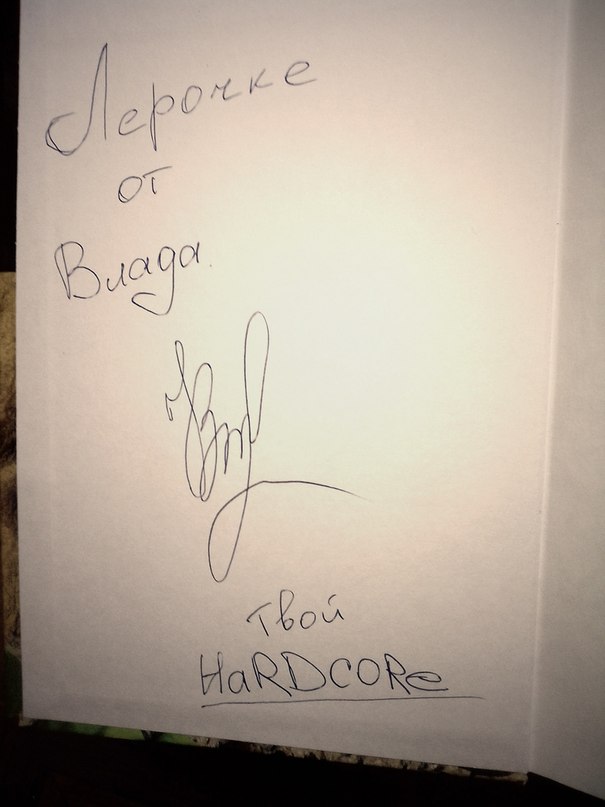 Лерочке
от
Влада.
твой
HaRDCORe